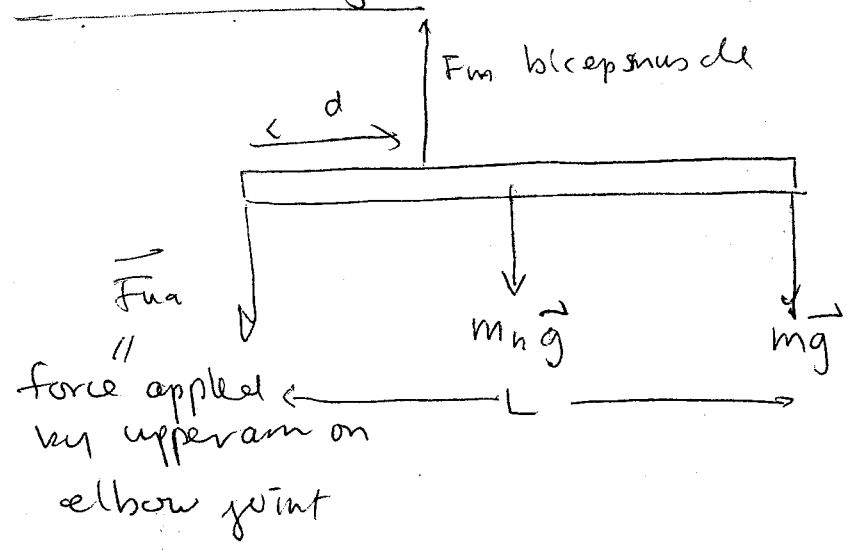 Fm bicepsmuscle
d
Fua
mh g
mg
"
force appled
L
by upperarm on
elbow joint